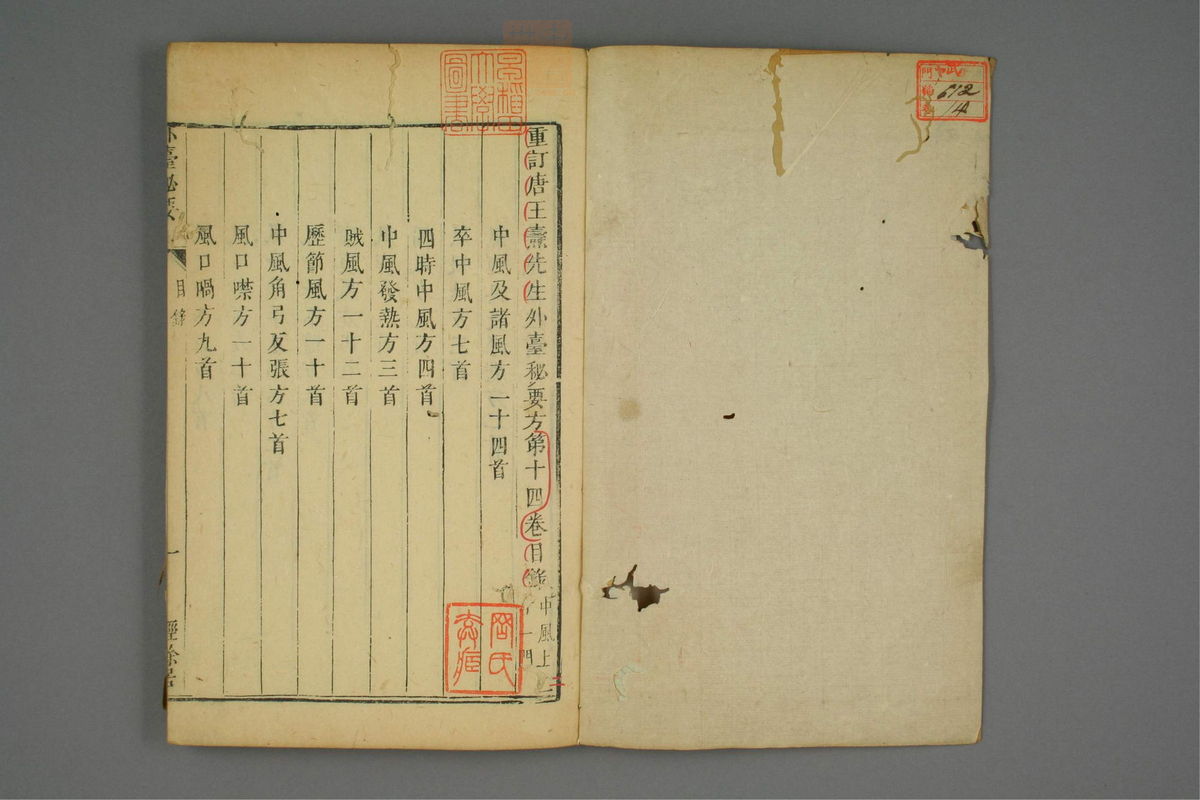 重訂唐王燾先生外臺秘要方第十四卷目錄 中風上
一門
中風及諸風方一十四首
卒中風方七首
四時中風方四首
中風發熱方三首
賊風方一十二首
歷節風方一十首
中風角弓反張方七首
風口噤方一十首
風口喎方九首
外臺秘要 目錄 一 經餘居
早稻田大學圖書
612
14